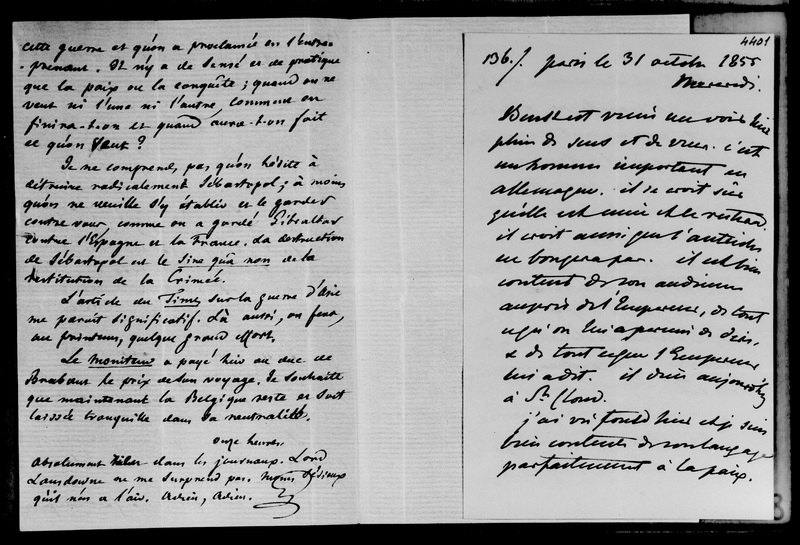 cette guerre et qu'on a proclamée en l'entre-
-prenant. Il n'y a de sensé et de pratique
que la paix ou la conquête ; quand on ne
veut ni l'une ni l'autre, comment en
finira-t-on et quand aura-t-on fait
ce qu'on veut ?
Je ne comprends pas qu'on hésite à
détruire radicalement Sébastopol ; à moins
qu'on ne veuille s'y établir et le garder
contre vous comme on a gardé Gibraltar
contre l'Espagne et la France. La destruction
de Sébastopol est le sine qua non de la
restitution de la Crimée.
L'article du Times sur la guerre d'Asie
me paraît significatif. Là aussi, on fera,
au printems, quelque grand effort.
Le Moniteur a payé hier au duc de
Brabant le prix de son voyage. Je souhaite
que maintenant la Belgique reste et soit
laissée tranquille dans sa neutralité.
Onze heures.
Absolument rien dans les journaux. Lord
Lansdowne ne me surprend pas. Moins sérieux
qu'il n'en a l'air. Adieu, Adieu.
4401
136./. Paris le 31 octobre 1855
Mercredi.
Beust est venu me voir hier
plein de sens et de vues. c'est
un homme important en
Allemagne. il se croit sûr
qu'elle est unie et le restera.
il croit aussi que l'Autriche
ne bougera pas. il est bien
content de son audience
auprès de l'Empereur, de tout
ce qu'on lui a permis de dire,
& de tout ce que l'Empereur
lui a dit. il dîne aujourd'hui
à St Cloud.
j'ai vu Fould hier et je suis
bien contente de son langage
parfaitement à la paix.